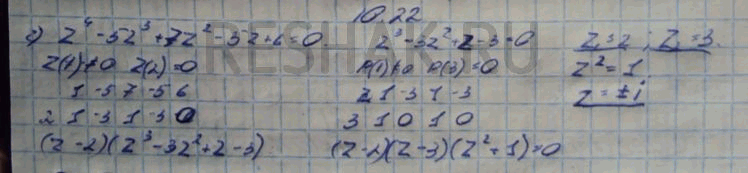 10.22
г) z⁴ - 5z³ + 7z² - 5z + 6 = 0.
z(1) ≠ 0 z(2) = 0
1 -5 7 -5 6
2 1 -3 1 -3 0
(z - 2)(z³ - 3z² + z - 3)
z³ - 3z² + z - 3 = 0
p(1) ≠ 0 p(3) = 0
1 -3 1 -3
3 1 0 1 0
(z - 2)(z - 3)(z² + 1) = 0
z = 2 ; z = 3.
z² = 1
z = ± i
RESHAK.RU